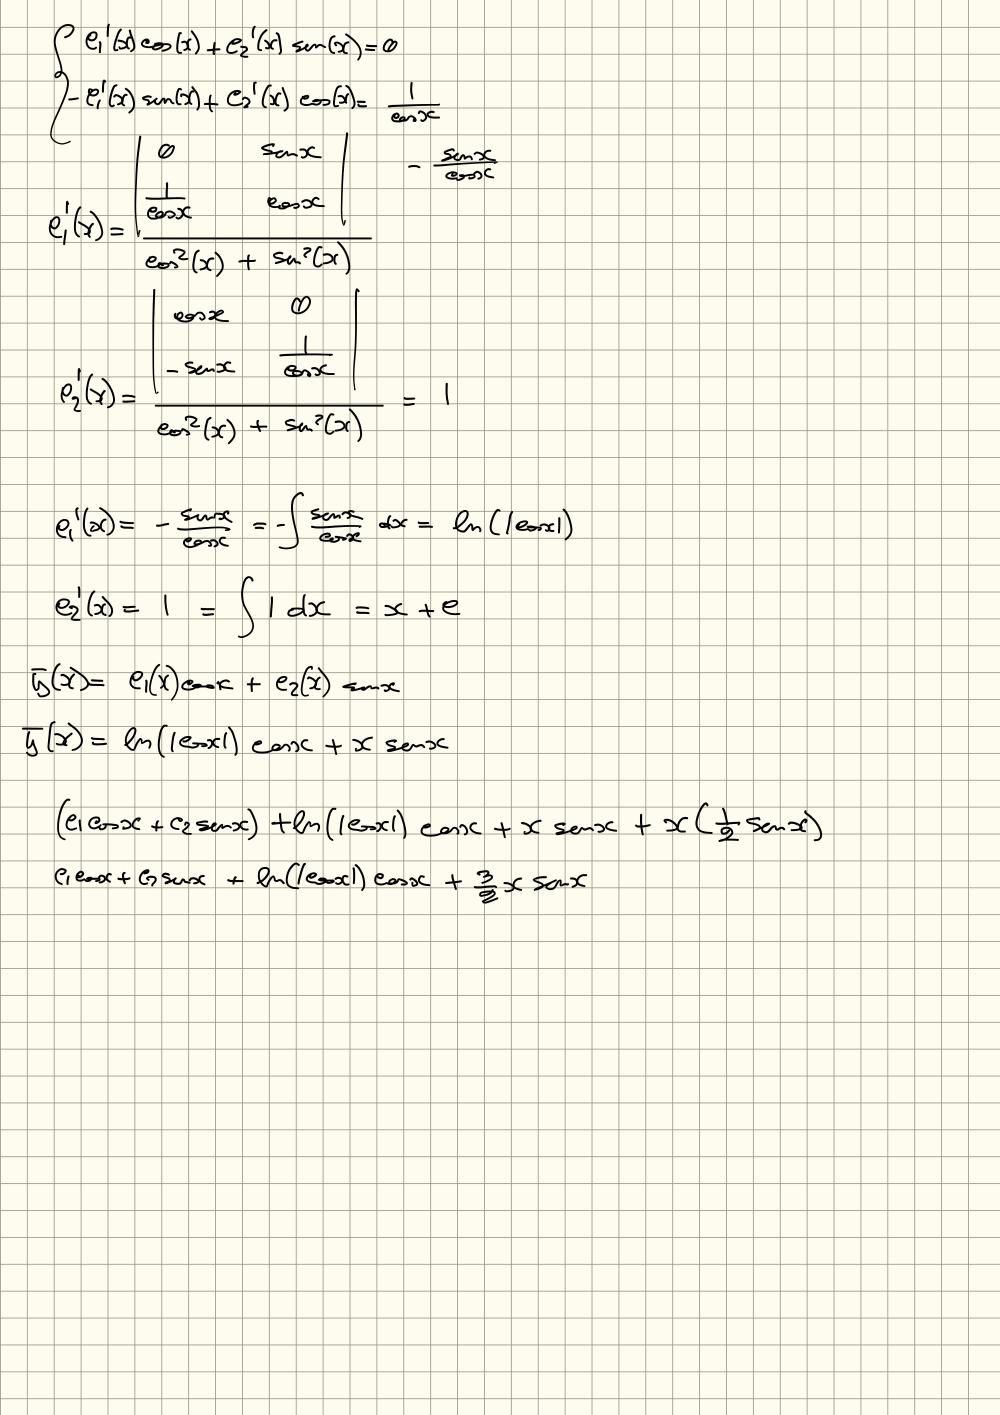 c₁'(x) cos(x) + c₂'(x) sen(x) = 0
- c₁'(x) sen(x) + c₂'(x) cos(x) = 1/cosx
c₁'(x) = | 0 senx ; 1/cosx cosx | / (cos²(x) + sen²(x)) - senx/cosx
c₂'(x) = | cosx 0 ; -senx 1/cosx | / (cos²(x) + sen²(x)) = 1
c₁'(x) = - senx/cosx = -∫ senx/cosx dx = ln(|cosx|)
c₂'(x) = 1 = ∫ 1 dx = x + c
ȳ(x) = c₁(x) cosx + c₂(x) senx
ȳ(x) = ln(|cosx|) cosx + x senx
(c₁ cosx + c₂ senx) + ln(|cosx|) cosx + x senx + x(1/2 senx)
c₁ cosx + c₂ senx + ln(|cosx|) cosx + 3/2 x senx